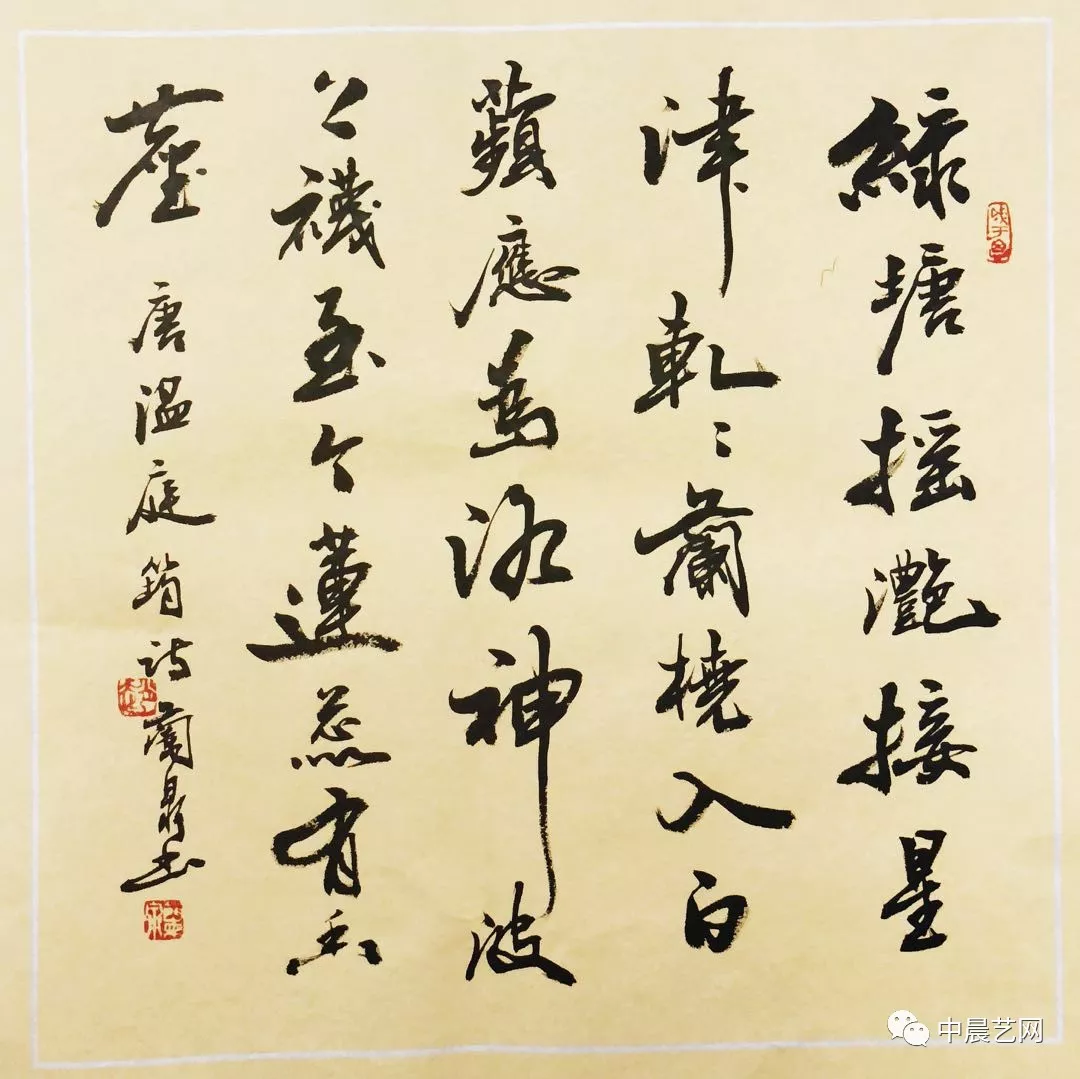 綠塘摇灧接星
津軋〻蘭橈入白
蘋應為洛神波
上襪至今蓮蕊有香
塵 唐溫庭筠詩
中晨艺网